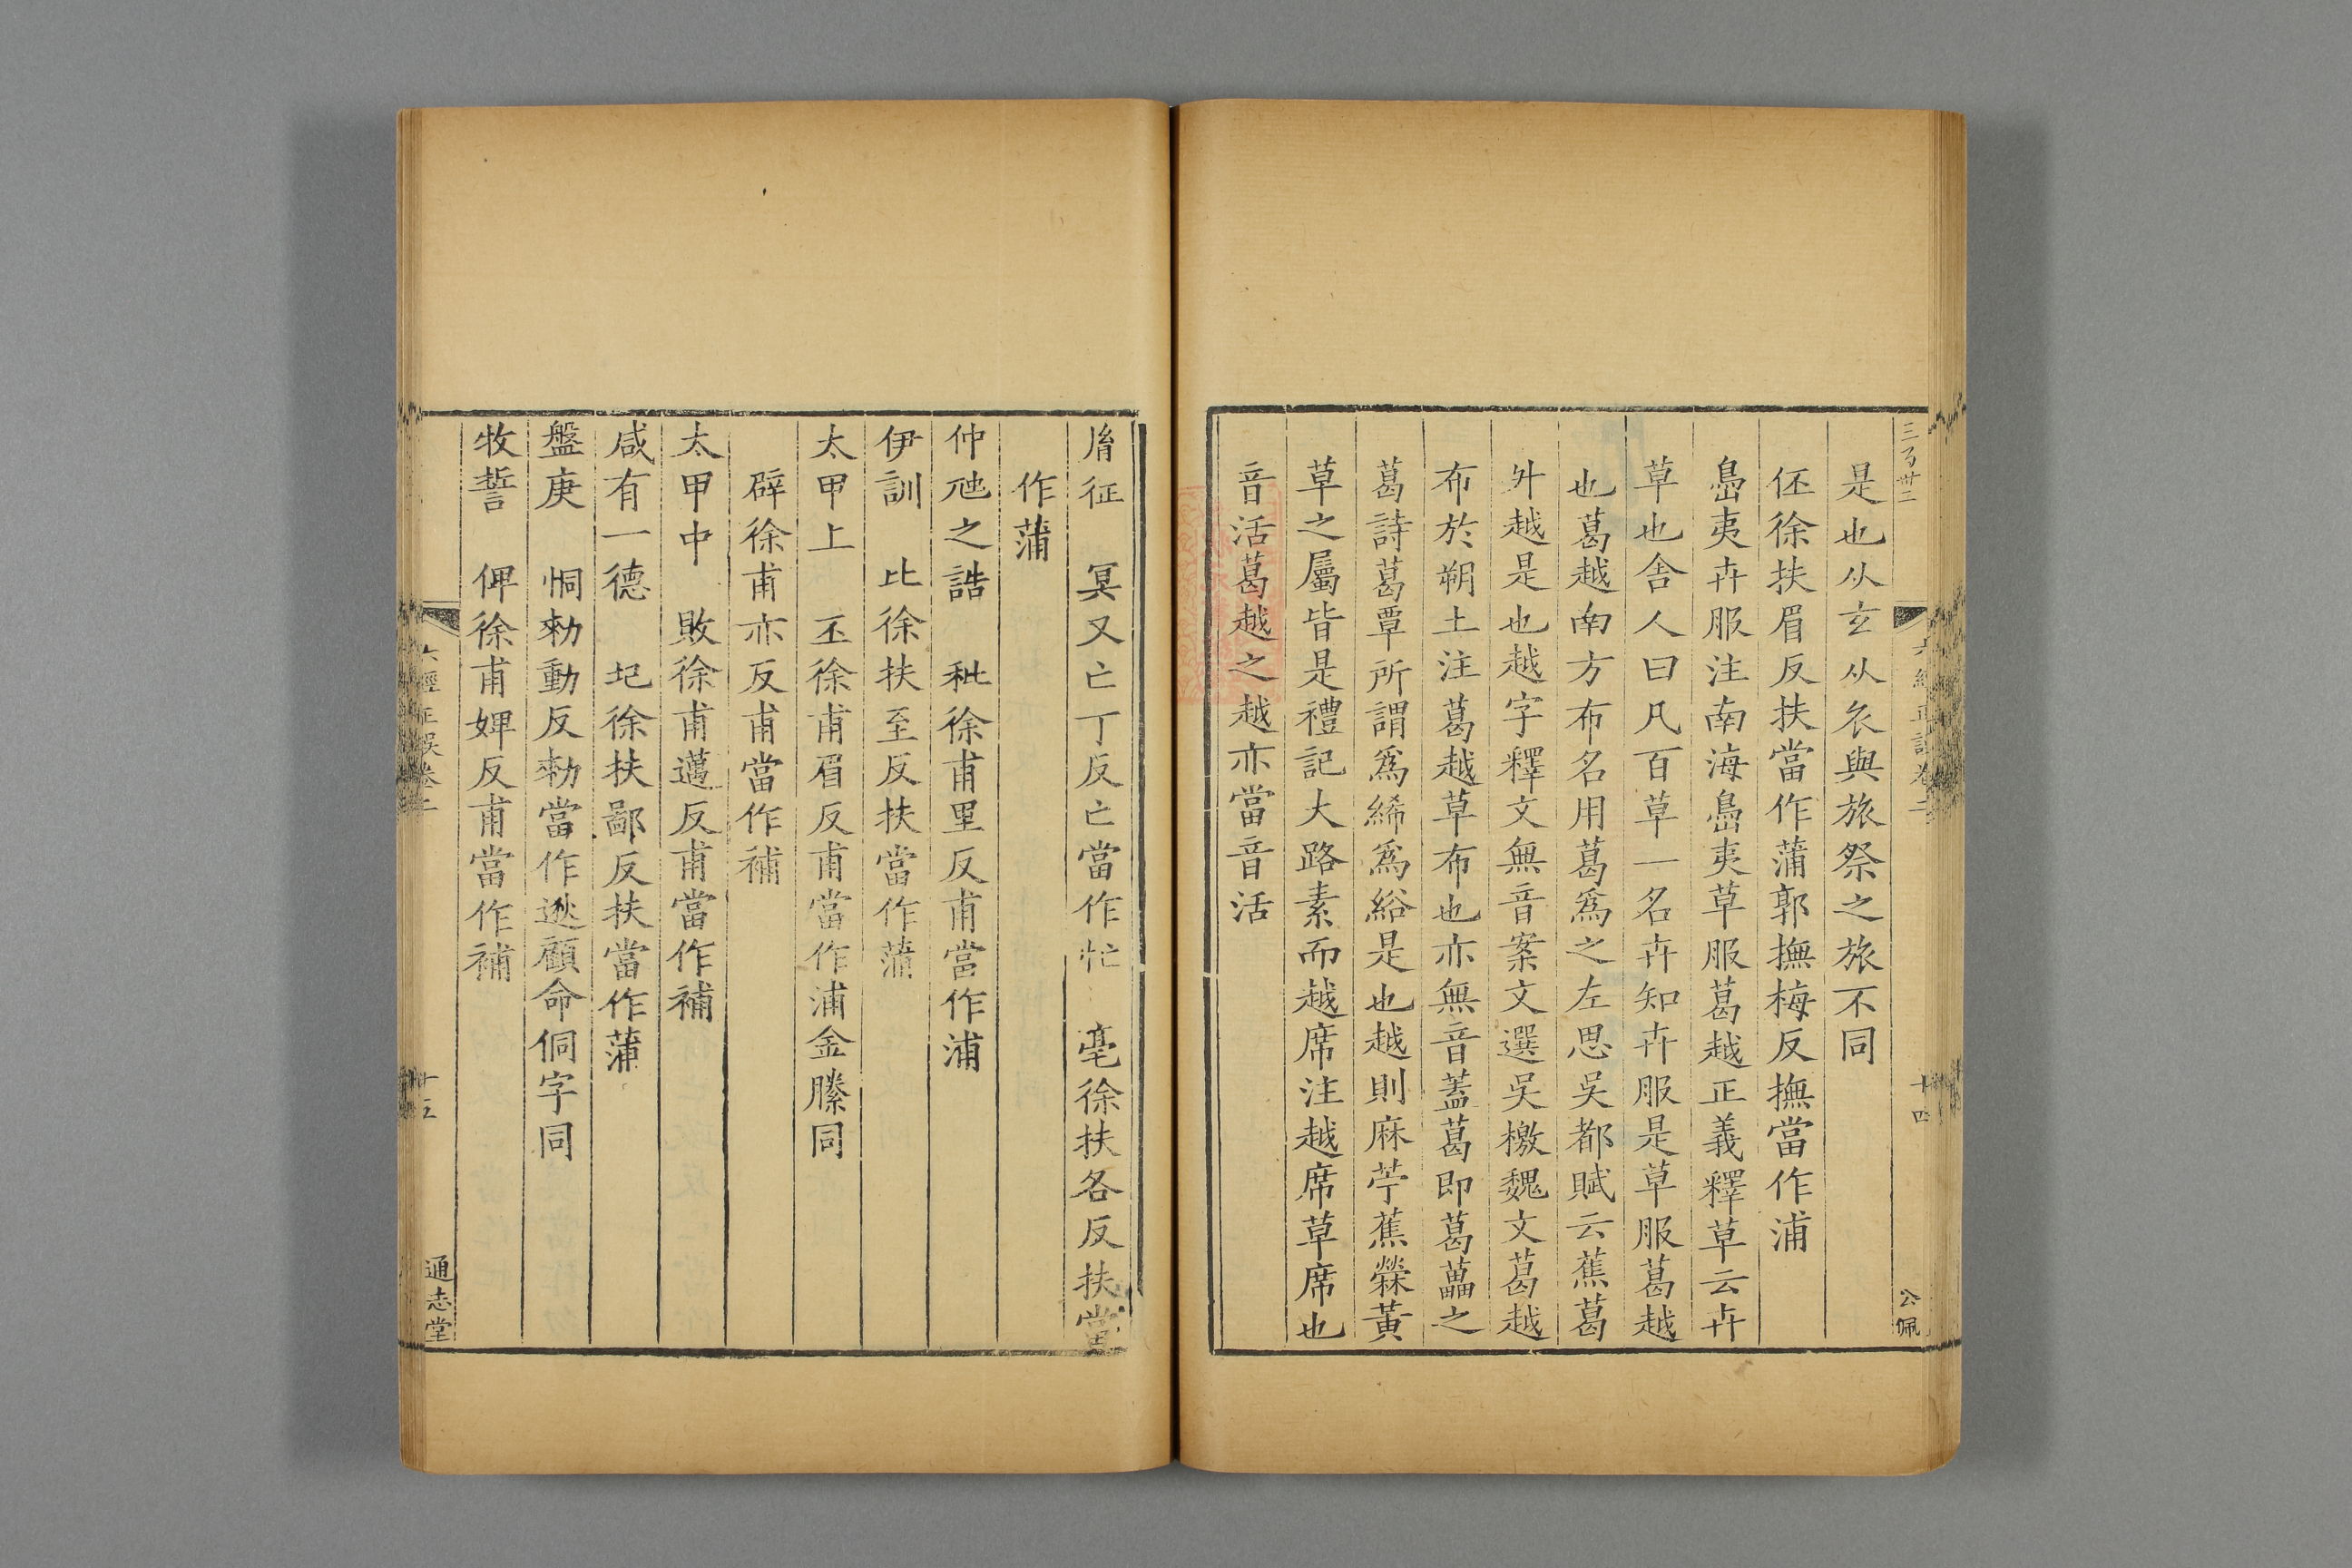 三百卅二
六經正誤卷二
十四
公佩
是也从玄从衣與旅祭之旅不同
伾徐扶眉反扶當作蒲郭撫梅反撫當作浦
島夷卉服注南海島夷草服葛越正義釋草云卉
草也舍人曰凡百草一名卉知卉服是草服葛越
也葛越南方布名用葛爲之左思吳都賦云蕉葛
升越是也越字釋文無音案文選吳檄魏文葛越
布於朔土注葛越草布也亦無音蓋葛即葛藟之
葛詩葛覃所謂爲絺爲綌是也越則麻苧蕉檾黃
草之屬皆是禮記大路素而越席注越席草席也
音活葛越之越亦當音活
胤征　冥又亡丁反亡當作忙　亳徐扶各反扶當
作蒲
仲虺之誥　秕徐甫里反甫當作浦
伊訓　比徐扶至反扶當作蒲
太甲上　丕徐甫眉反甫當作浦金縢同
辟徐甫亦反甫當作補
太甲中　敗徐甫邁反甫當作補
咸有一德　圮徐扶鄙反扶當作蒲
盤庚　恫勑動反勑當作逖顧命侗字同
牧誓　俾徐甫婢反甫當作補
六經正誤卷二
十五
通志堂